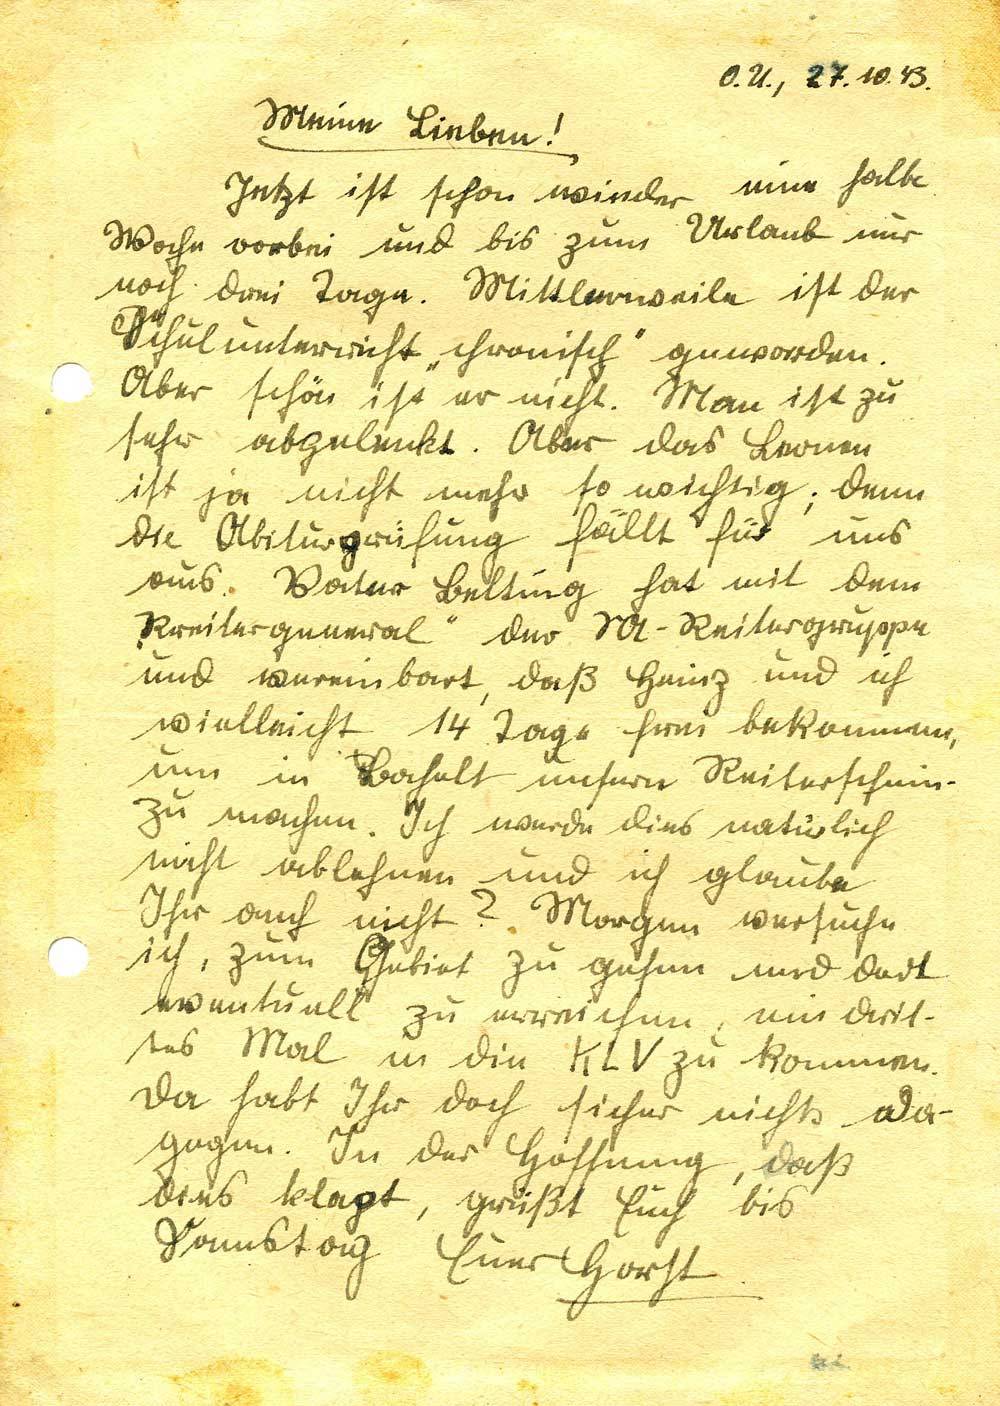 O.U., 27.10.43.
Meine Lieben!
Jetzt ist schon wieder eine halbe
Woche vorbei und bis zum Urlaub nur
noch drei Tage. Mittlerweile ist der
Schulunterricht „chronisch" geworden.
Aber schön ist er nicht. Man ist zu
sehr abgelenkt. Aber das Lernen
ist ja nicht mehr so wichtig; denn
die Abiturprüfung fällt für uns
aus. Vater Belting hat mit dem
„Kreitergeneral" der SA-Reitergruppe
und vereinbart, daß Heinz und ich
vielleicht 14 Tage frei bekommen,
um in Bocholt unsern Reiterschein-
zu machen. Ich werde dies natürlich
nicht ablehnen und ich glaube
Ihr auch nicht? Morgen versuche
ich, zum Gebiet zu gehen und dort
eventuell zu erreichen, ein drit-
tes Mal in die KLV zu kommen.
Da habt Ihr doch sicher nichts da-
gegen. In der Hoffnung, daß
dies klapt, grüßt Euch bis
Sonnstag Euer Horst